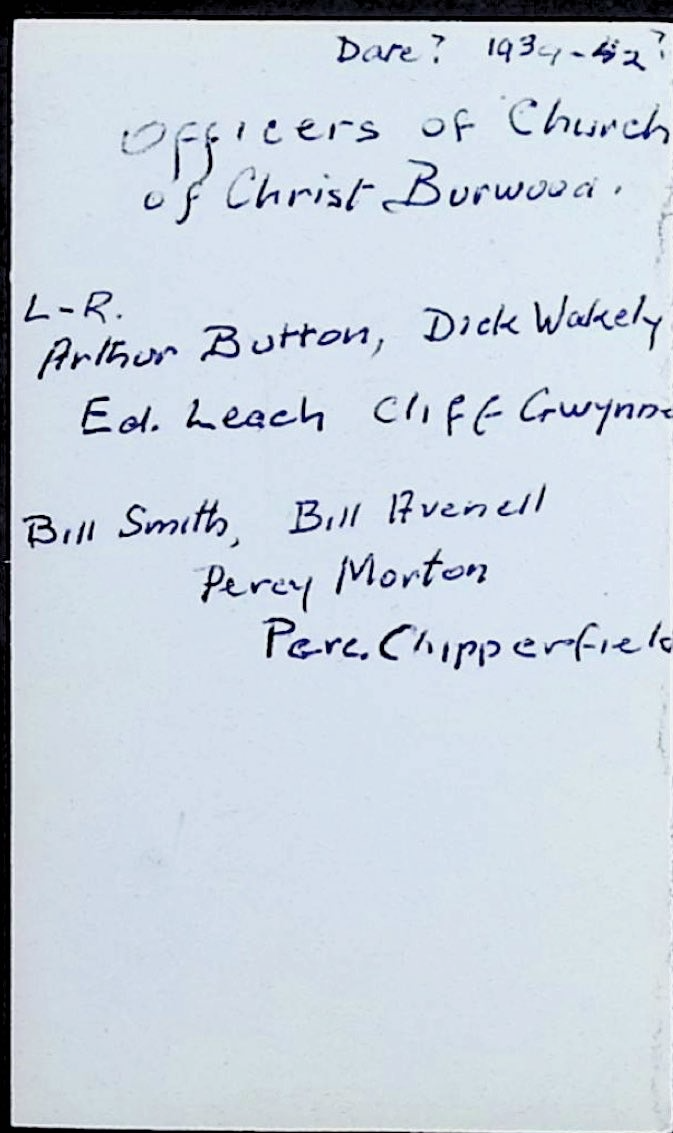 Date? 1939-42?
Officers of Church
of Christ Burwood.
L-R.
Arthur Button, Dick Wakely
Ed. Leach Cliff Gwynne
Bill Smith, Bill Avenell
Percy Morton
Perc. Chipperfield